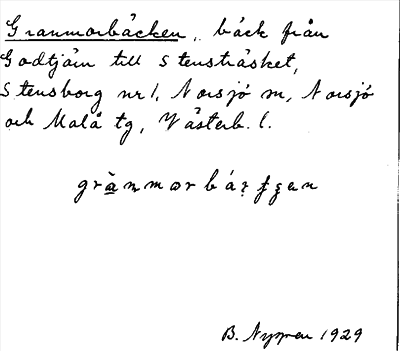 Granmorbäcken, bäck från
Godtjärn till Stensträsket,
Stensborg nr 1, Norsjö sn, Norsjö
och Malå tg, Västerb. l.
B. Nygren 1929